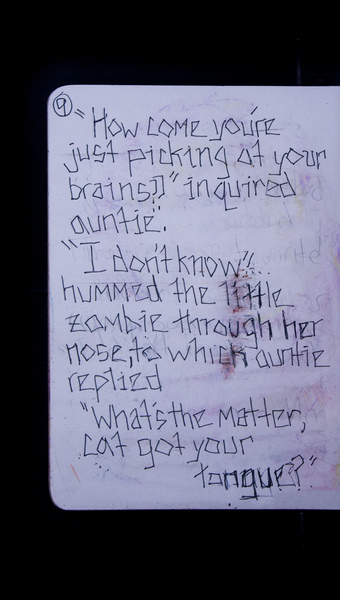 9
"How come you're
just picking at your
brains?" inquired
auntie.
"I don't know"...
hummed the little
zombie through her
nose, to which auntie
replied
"What's the matter,
cat got your
tongue?"